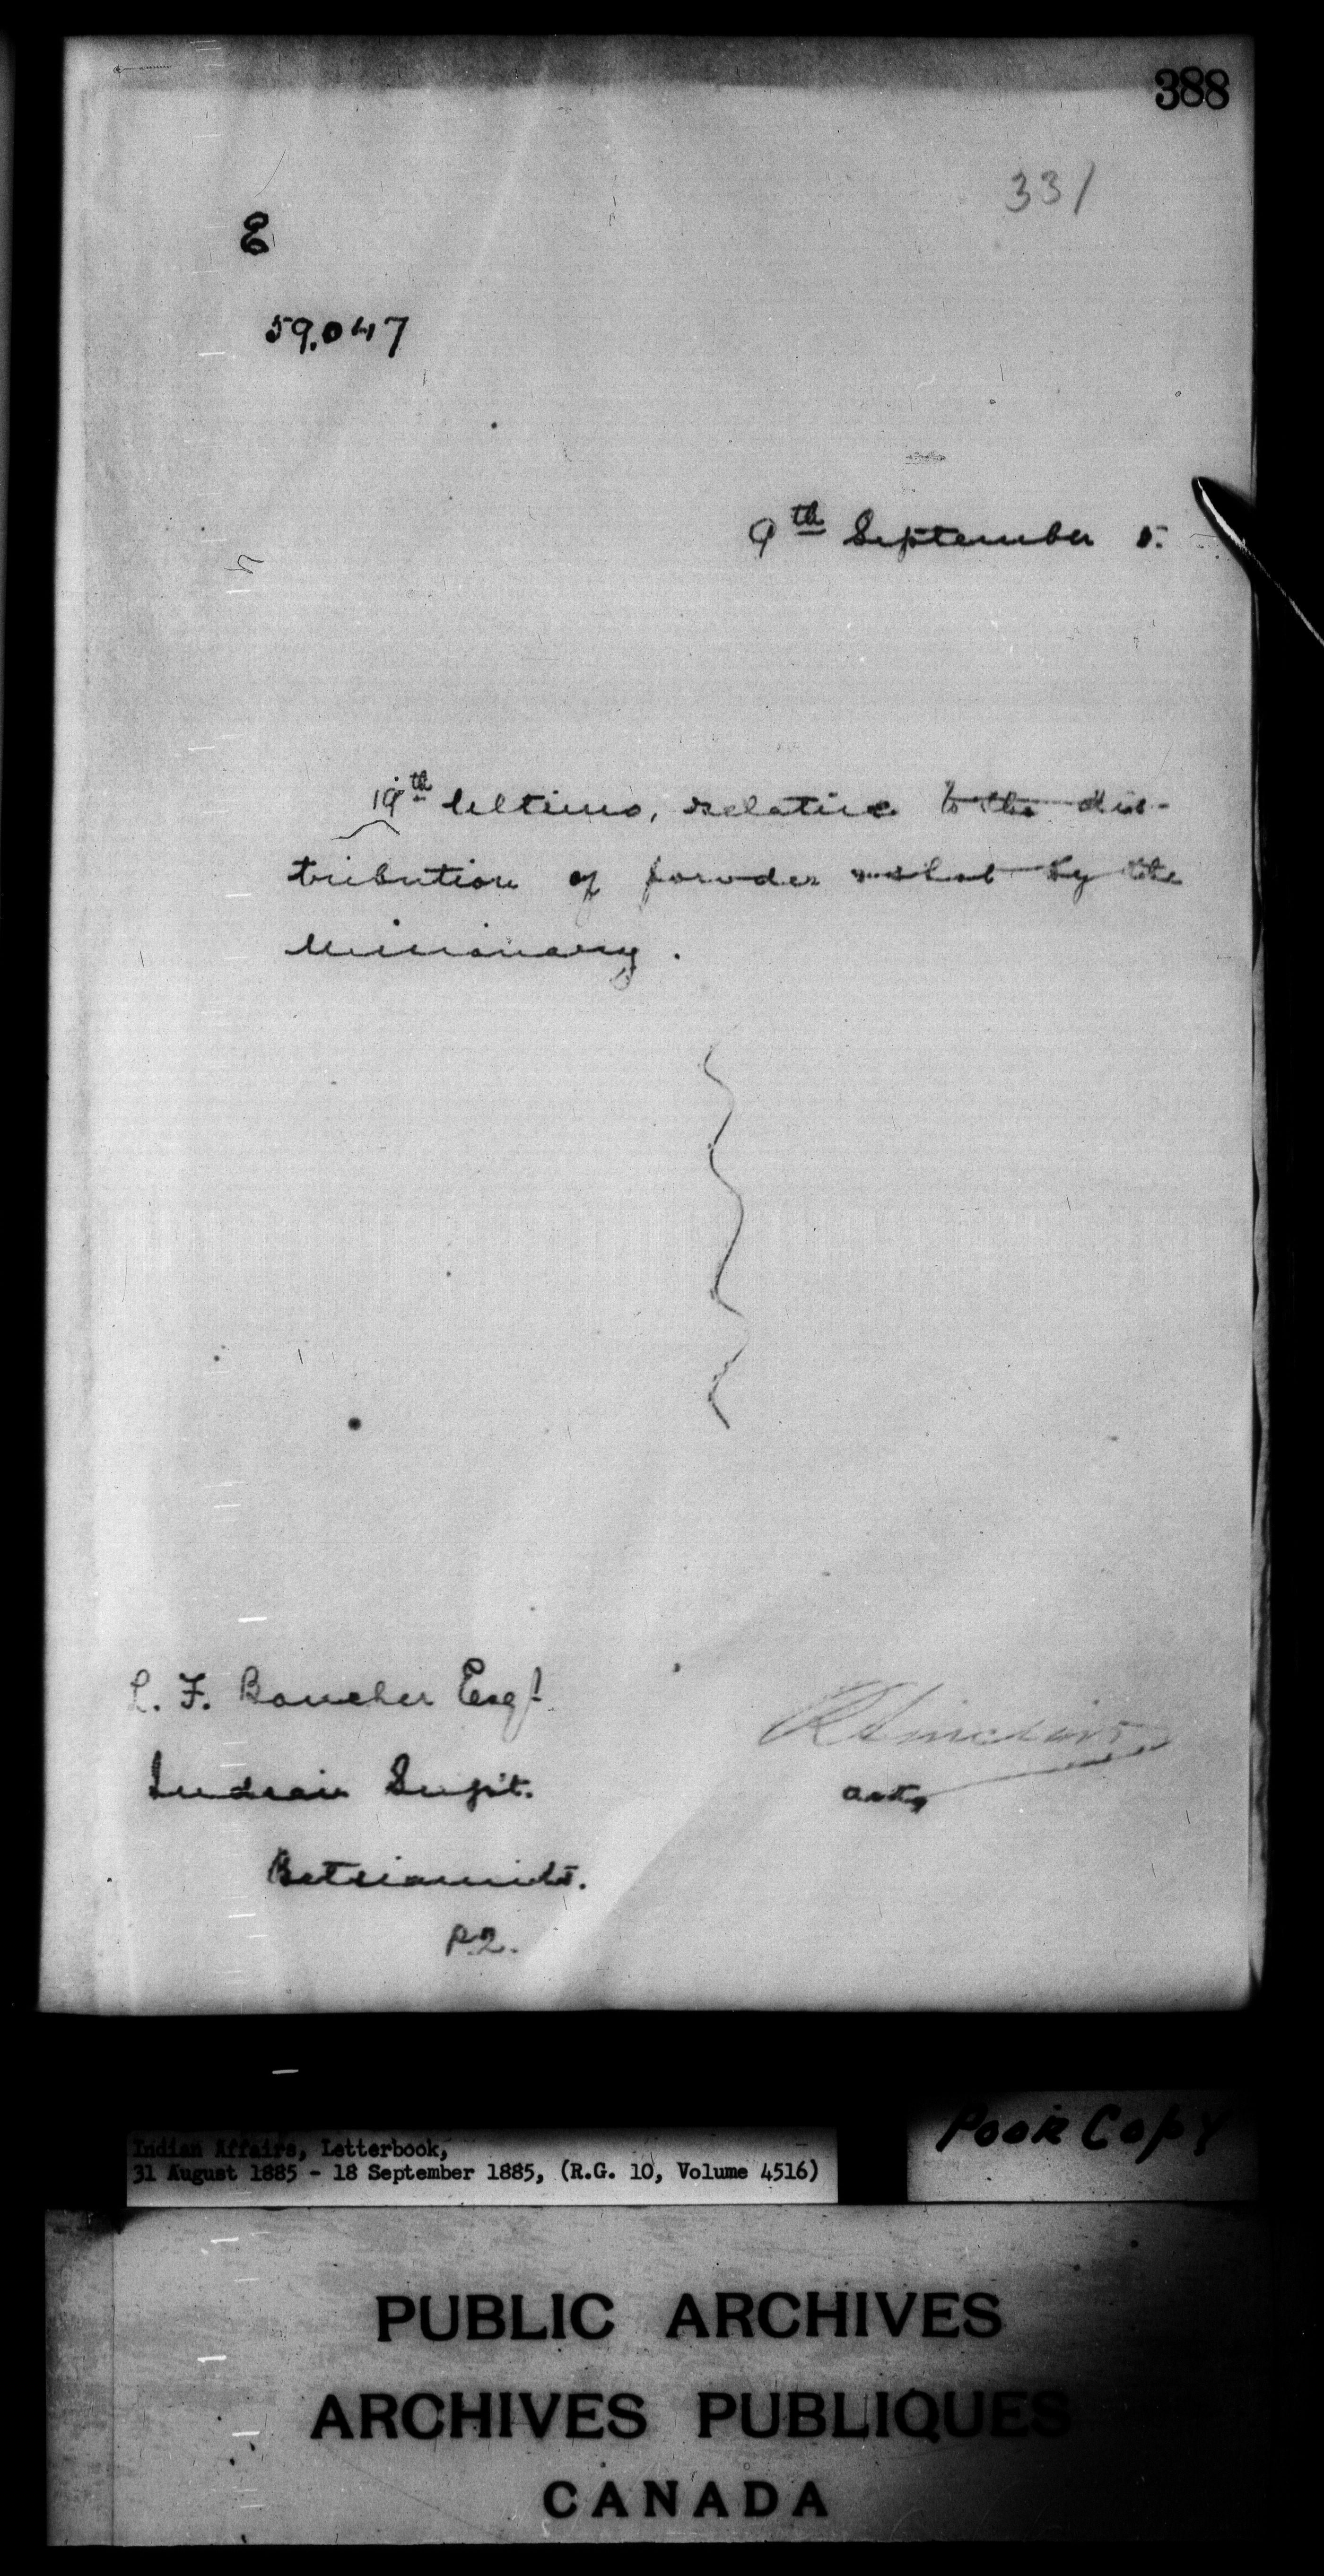 388
331
E
59.047
9th September 5.
19th Ultimo, relative to the dis-
tribution of powder & shot by the
Missionary.
L. F. Boucher Esqr.
Indian Supt.
Betsiamits.
P.Q.
R Sinclair
acty
Indian Affairs, Letterbook,
31 August 1885 - 18 September 1885, (R.G. 10, Volume 4516)
Poor Copy
PUBLIC ARCHIVES
ARCHIVES PUBLIQUES
CANADA